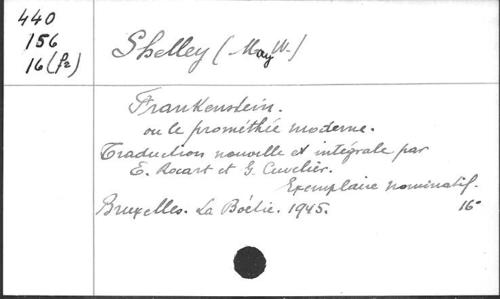 440
156
16 (f2)
Shelley (Mary W.)
Frankenstein.
ou le prométhée moderne.
Traduction nouvelle et intégrale par
E. Rocart et G. Cuvelier.
Exemplaire nominatif.
Bruxelles. La Boétie. 1945. 16°